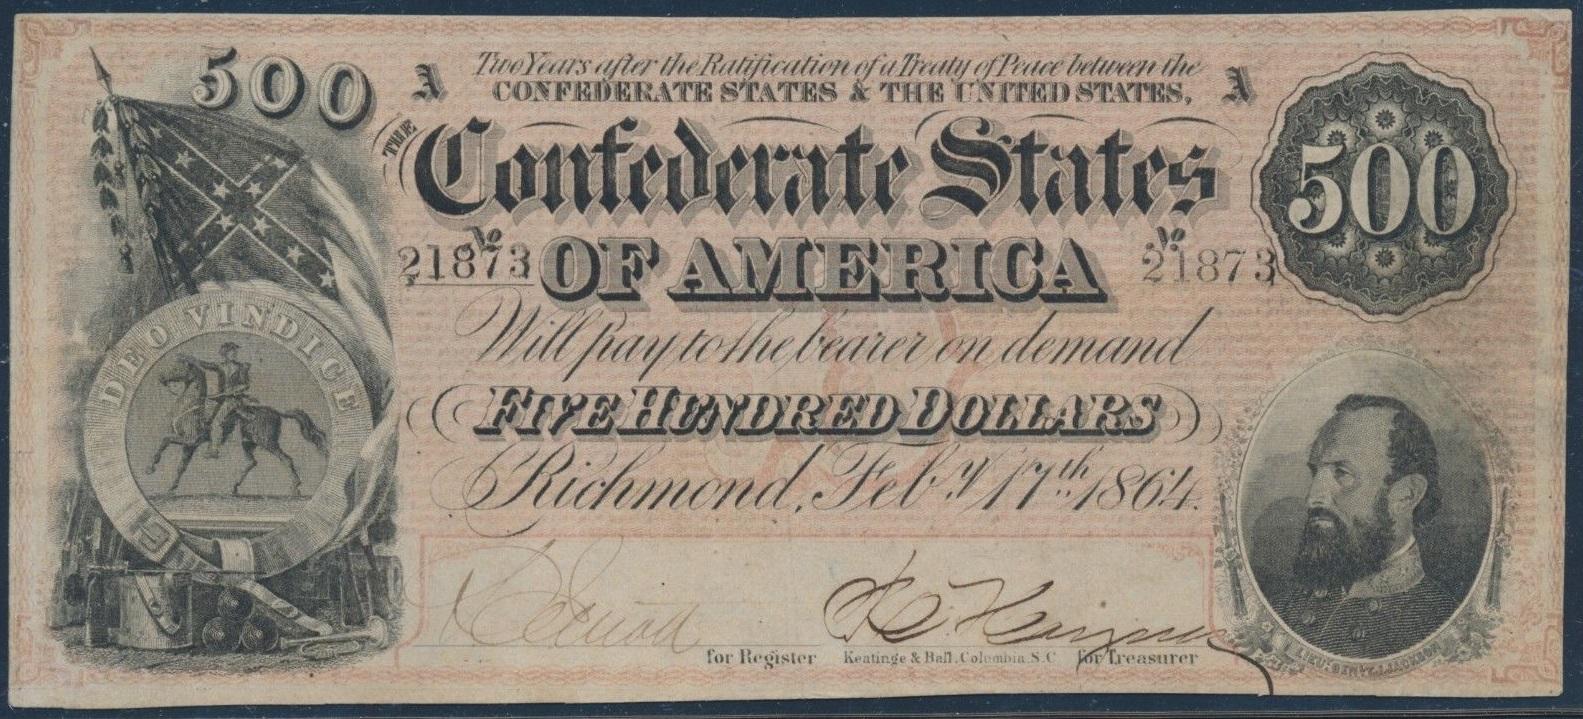 500
A Two Years after the Ratification of a Treaty of Peace between the A
CONFEDERATE STATES & THE UNITED STATES,
THE Confederate States
500
No 21873 OF AMERICA No 21873
Will pay to the bearer on demand
DEO VINDICE
FIVE HUNDRED DOLLARS
Richmond, Feby 17th 1864.
for Register Keatinge & Ball, Columbia, S.C. for Treasurer
LIEU: GEN: T.J. JACKSON